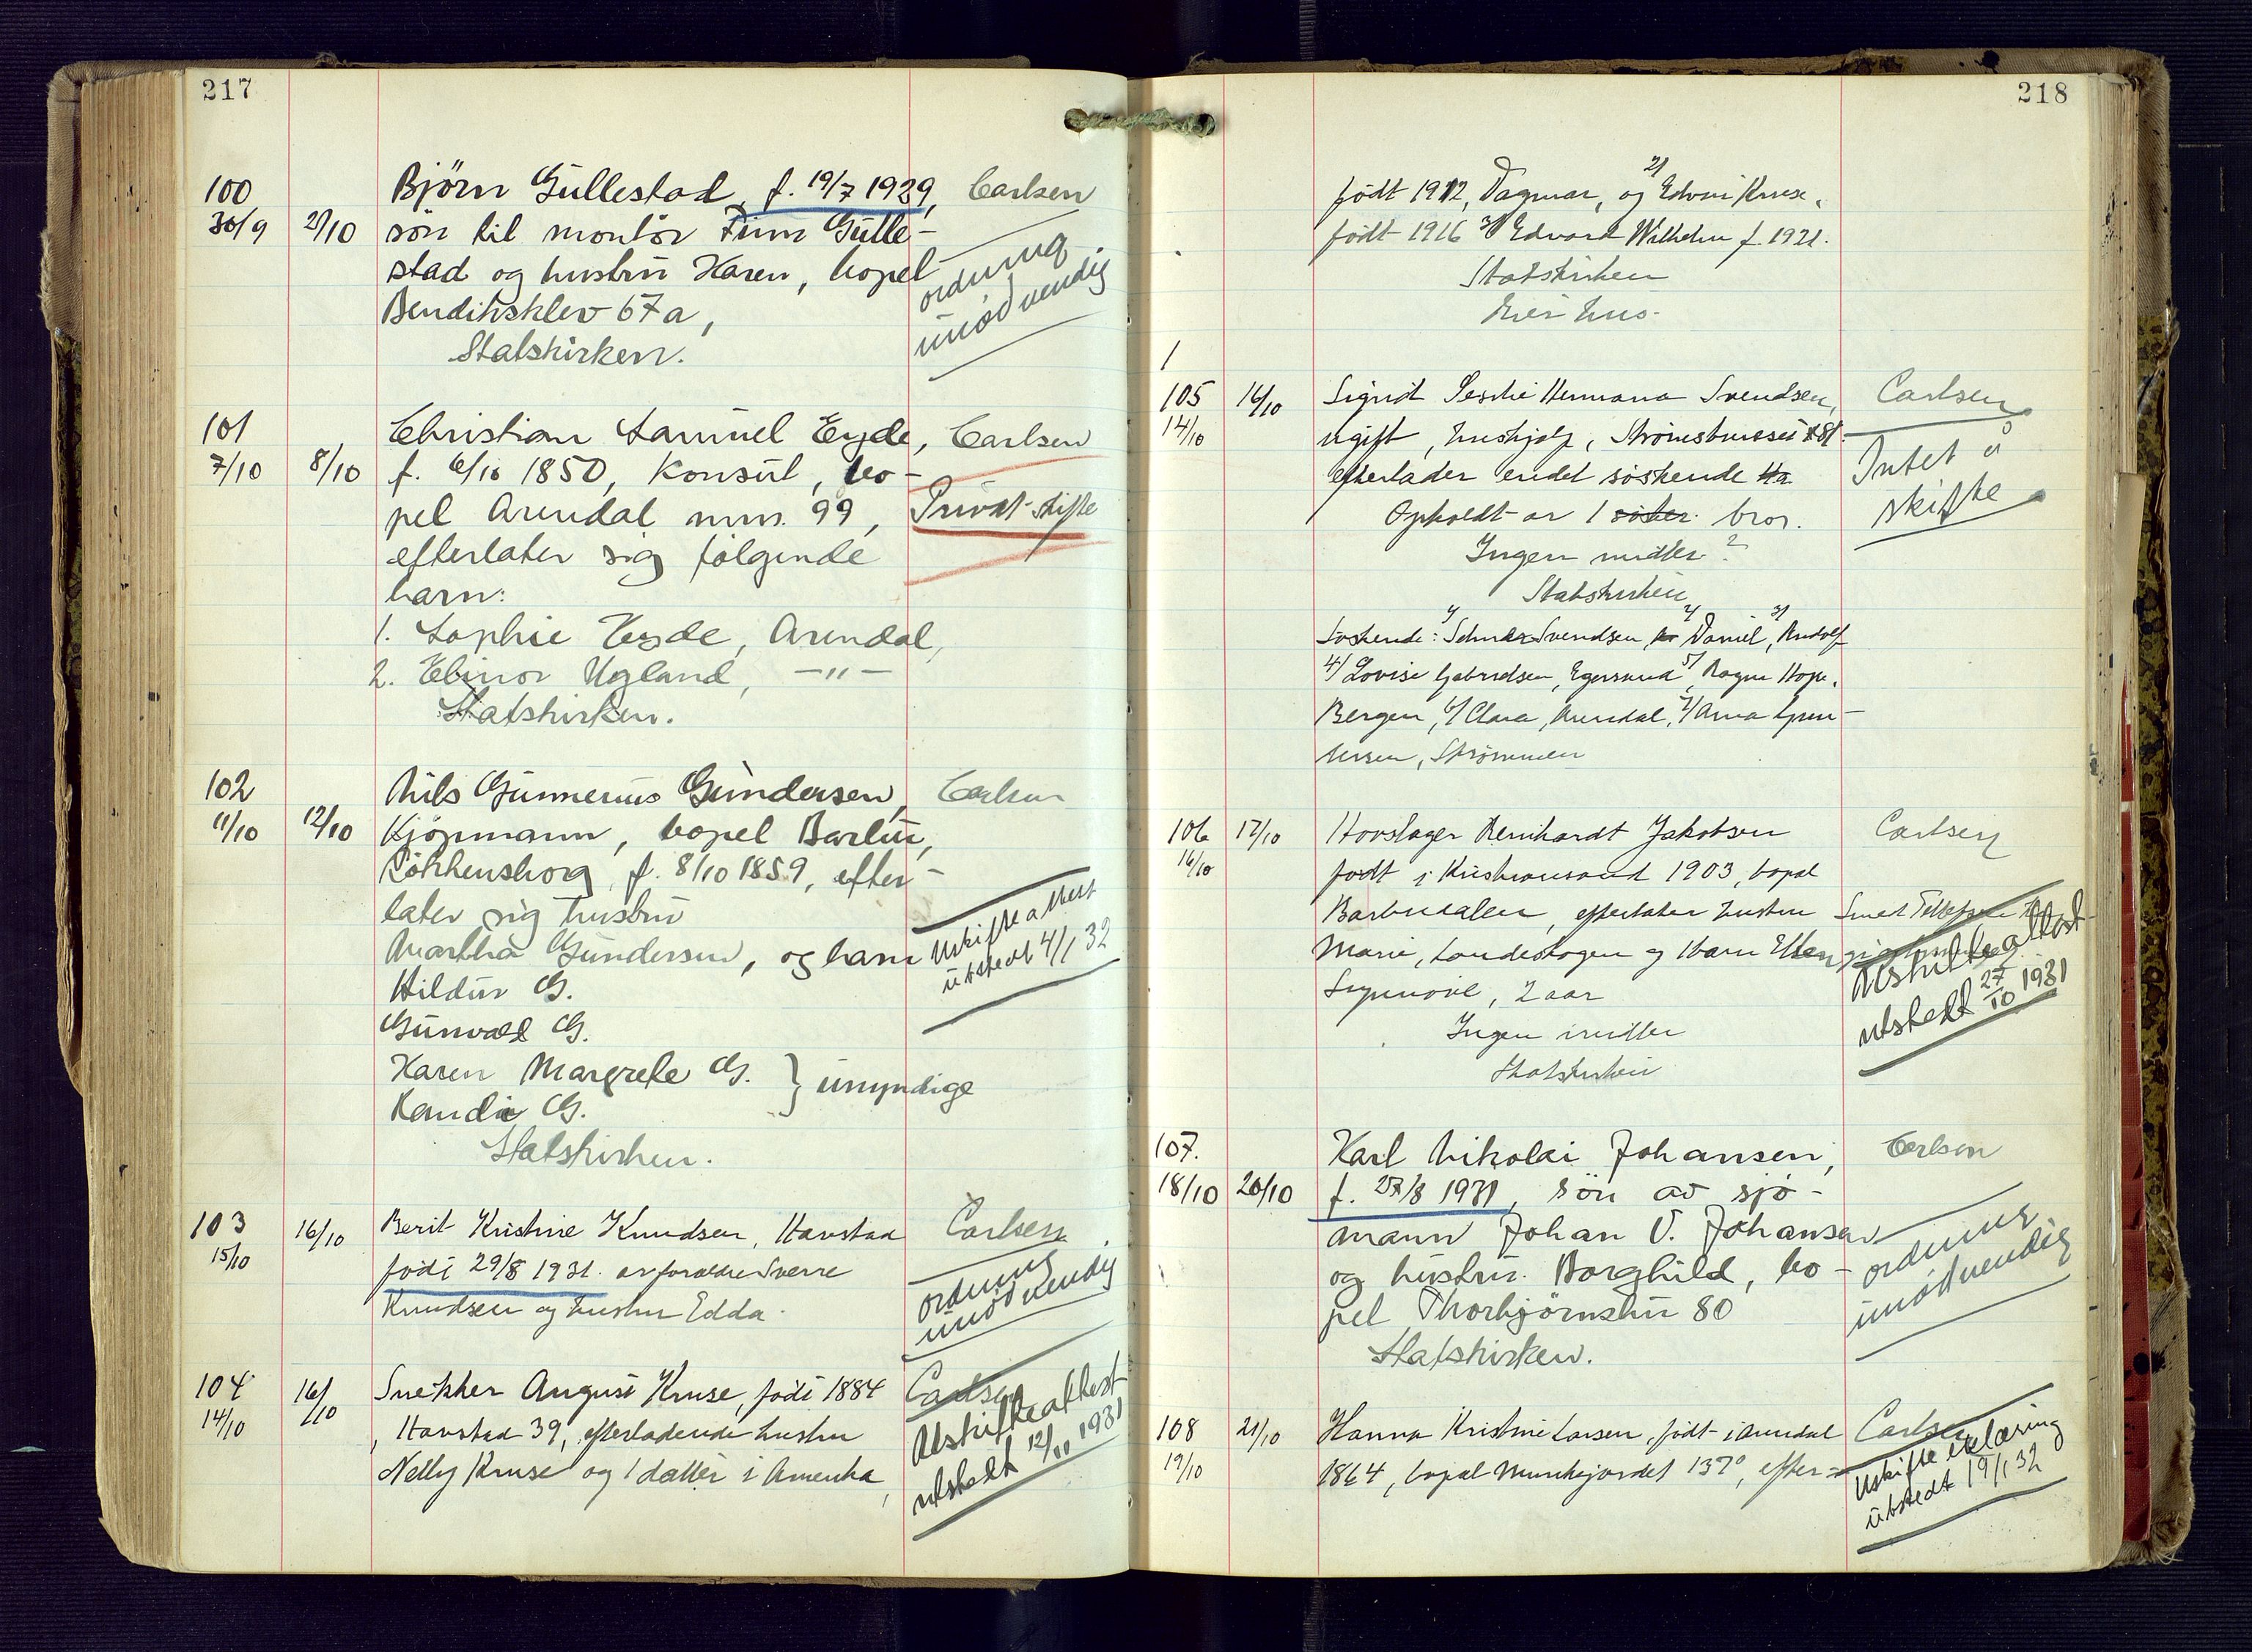 217
100
Björn Gullestad, f. 19/7 1929, Carlsen
30/9 2/10 sön til montör Finn Gulle-
stad og hustru Karen, bopel
Benditsklev 67a,
ordning
unødvendig
Statskirken.
101
Christian Samuel Eyde, Carlsen
7/10 8/10 f. 6/10 1850, Konsul, bo-
pel Arendal mm. 99, Privat skifte
efterlater sig følgende
barn:
1. Sophie Eyde, Arendal,
2. Elinor Ugland, —"—
Statskirken.
102
Nils Gunnerius Gundersen, Carlsen
11/10 12/10 Kjöpmann, bopel Barbu,
f. 8/10 1859, efter-
later sig hustru
Martha Gundersen, og barn
Uskifteattest
utstedt 4/1 32
Hildur G.
Gunvald G.
Karen Margrete G.
Randi G. } umyndige
Statskirken.
103 16/10 Berit Kristine Knudsen, Havstad Carlsen
15/10 født 29/8 1931 av foreldre Sverre
Knudsen og hustru Edda.
ordning
unødvendig
104 16/10 Snekker August Kruse, født 1884 Carlsen
14/10 , Havstad 39, efterladende hustru
Nelly Kruse og 1 datter i Amerika,
Uskifteattest
utstedt 12/11 1931
218
født 1912, Dagmar, og 2/ Edvin Kruse,
født 1916 3/ Edvard Wilhelm f. 1921.
Statskirken
Eier hus.
105 16/10 Sigrid Hermana Svendsen, Carlsen
14/10 ugift, hushjelp, Strømsbusset 81.
efterlader endel søskende Ha
Opholdt av 1 søster bror.
Intet å
skifte
Ingen midler?
Statskirken
Søskende: 1/ Svendsen, 2/ Daniel, 3/ Rudolf
4/ Lovise Gabrielsen, Egersund, 5/ Ragna Hope,
Bergen, 6/ Clara, Arendal, 7/ Anna
Strømmen
106 17/10 Hovslager Reinhardt Jakobsen Carlsen
16/10 født i Kristiansand 1903, bopel
Barbudalen, efterlater hustru
Marie, Landeskogen og 1 barn Ellen
Synnøve, 2 aar
Uskifteattest
utstedt 27/10 1931
Ingen midler
Statskirken
107.
Karl Nikolai Johansen, Carlsen
18/10 20/10 f. 27/8 1931, sön av sjö-
mann Johan V. Johansen
og hustru Borghild, bo-
pel Thorbjörnsbu 80
ordning
unødvendig
Statskirken.
108 21/10 Hanna Kristine Larsen, født i Arendal Carlsen
19/10 1864, bopel Munkejordet 137°, efter-
Uskifteerklæring
utstedt 19/1 32